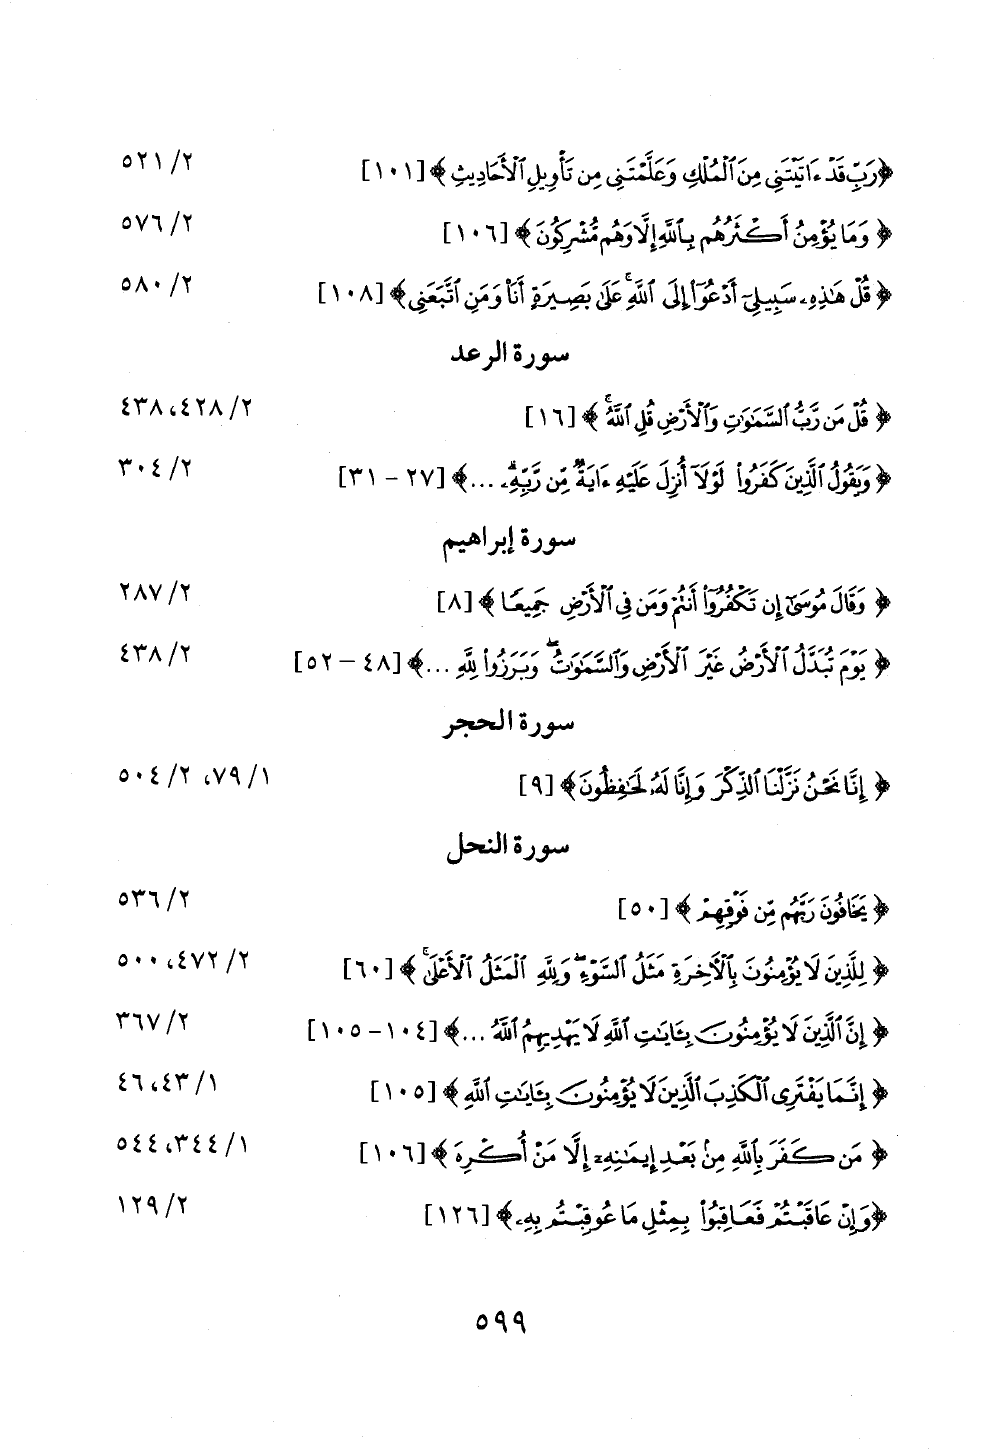 ﴿رَبِّ قَدْ ءَاتَيْتَنِي مِنَ ٱلْمُلْكِ وَعَلَّمْتَنِي مِن تَأْوِيلِ ٱلْأَحَادِيثِ﴾ [١٠١] ٢/ ٥٢١
﴿وَمَا يُؤْمِنُ أَكْثَرُهُم بِٱللَّهِ إِلَّا وَهُم مُّشْرِكُونَ﴾ [١٠٦] ٢/ ٥٧٦
﴿قُلْ هَٰذِهِۦ سَبِيلِىٓ أَدْعُوٓا۟ إِلَى ٱللَّهِ ۚ عَلَىٰ بَصِيرَةٍ أَنَا۠ وَمَنِ ٱتَّبَعَنِى﴾ [١٠٨] ٢/ ٥٨٠
سورة الرعد
﴿قُلْ مَن رَّبُّ ٱلسَّمَٰوَٰتِ وَٱلْأَرْضِ قُلِ ٱللَّهُ ۚ﴾ [١٦] ٢/ ٤٢٨، ٤٣٨
﴿وَيَقُولُ ٱلَّذِينَ كَفَرُوا۟ لَوْلَآ أُنزِلَ عَلَيْهِ ءَايَةٌ مِّن رَّبِّهِۦ ۗ ...﴾ [٢٧ - ٣١] ٢/ ٣٠٤
سورة إبراهيم
﴿وَقَالَ مُوسَىٰٓ إِن تَكْفُرُوٓا۟ أَنتُمْ وَمَن فِى ٱلْأَرْضِ جَمِيعًا﴾ [٨] ٢/ ٢٨٧
﴿يَوْمَ تُبَدَّلُ ٱلْأَرْضُ غَيْرَ ٱلْأَرْضِ وَٱلسَّمَٰوَٰتُ ۖ وَبَرَزُوا۟ لِلَّهِ ...﴾ [٤٨ - ٥٢] ٢/ ٤٣٨
سورة الحجر
﴿إِنَّا نَحْنُ نَزَّلْنَا ٱلذِّكْرَ وَإِنَّا لَهُۥ لَحَٰفِظُونَ﴾ [٩] ١/ ٧٩، ٢/ ٥٠٤
سورة النحل
﴿يَخَافُونَ رَبَّهُم مِّن فَوْقِهِمْ﴾ [٥٠] ٢/ ٥٣٦
﴿لِلَّذِينَ لَا يُؤْمِنُونَ بِٱلْأَخِرَةِ مَثَلُ ٱلسَّوْءِ ۖ وَلِلَّهِ ٱلْمَثَلُ ٱلْأَعْلَىٰ ۚ﴾ [٦٠] ٢/ ٤٧٢، ٥٠٠
﴿إِنَّ ٱلَّذِينَ لَا يُؤْمِنُونَ بِـَٔايَٰتِ ٱللَّهِ لَا يَهْدِيهِمُ ٱللَّهُ ...﴾ [١٠٤ - ١٠٥] ٢/ ٣٦٧
﴿إِنَّمَا يَفْتَرِى ٱلْكَذِبَ ٱلَّذِينَ لَا يُؤْمِنُونَ بِـَٔايَٰتِ ٱللَّهِ﴾ [١٠٥] ١/ ٤٣، ٤٦
﴿مَن كَفَرَ بِٱللَّهِ مِنۢ بَعْدِ إِيمَٰنِهِۦٓ إِلَّا مَنْ أُكْرِهَ﴾ [١٠٦] ١/ ٣٤٤، ٥٤٤
﴿وَإِنْ عَاقَبْتُمْ فَعَاقِبُوا۟ بِمِثْلِ مَا عُوقِبْتُم بِهِۦ﴾ [١٢٦] ٢/ ١٢٩
٥٩٩